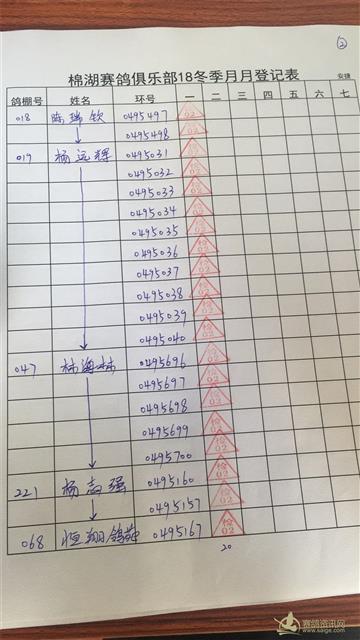 ②
棉湖赛鸽俱乐部18冬季月月登记表
安捷
鸽棚号 姓名 环号 一 二 三 四 五 六 七
018 陈瑞钦 0495497 检02
0495498 检02
019 杨远辉 0495031 检02
0495032 检02
0495033 检02
0495034 检02
0495035 检02
0495036 检02
0495037 检02
0495038 检02
0495039 检02
0495040 检02
047 林海林 0495696 检02
0495697 检02
0495698 检02
0495699 检02
0495700 检02
221 杨志强 0495160 检02
0495157 检02
068 恒翔鸽苑 0495167 检02
20
赛鸽资讯网
www.saige.com